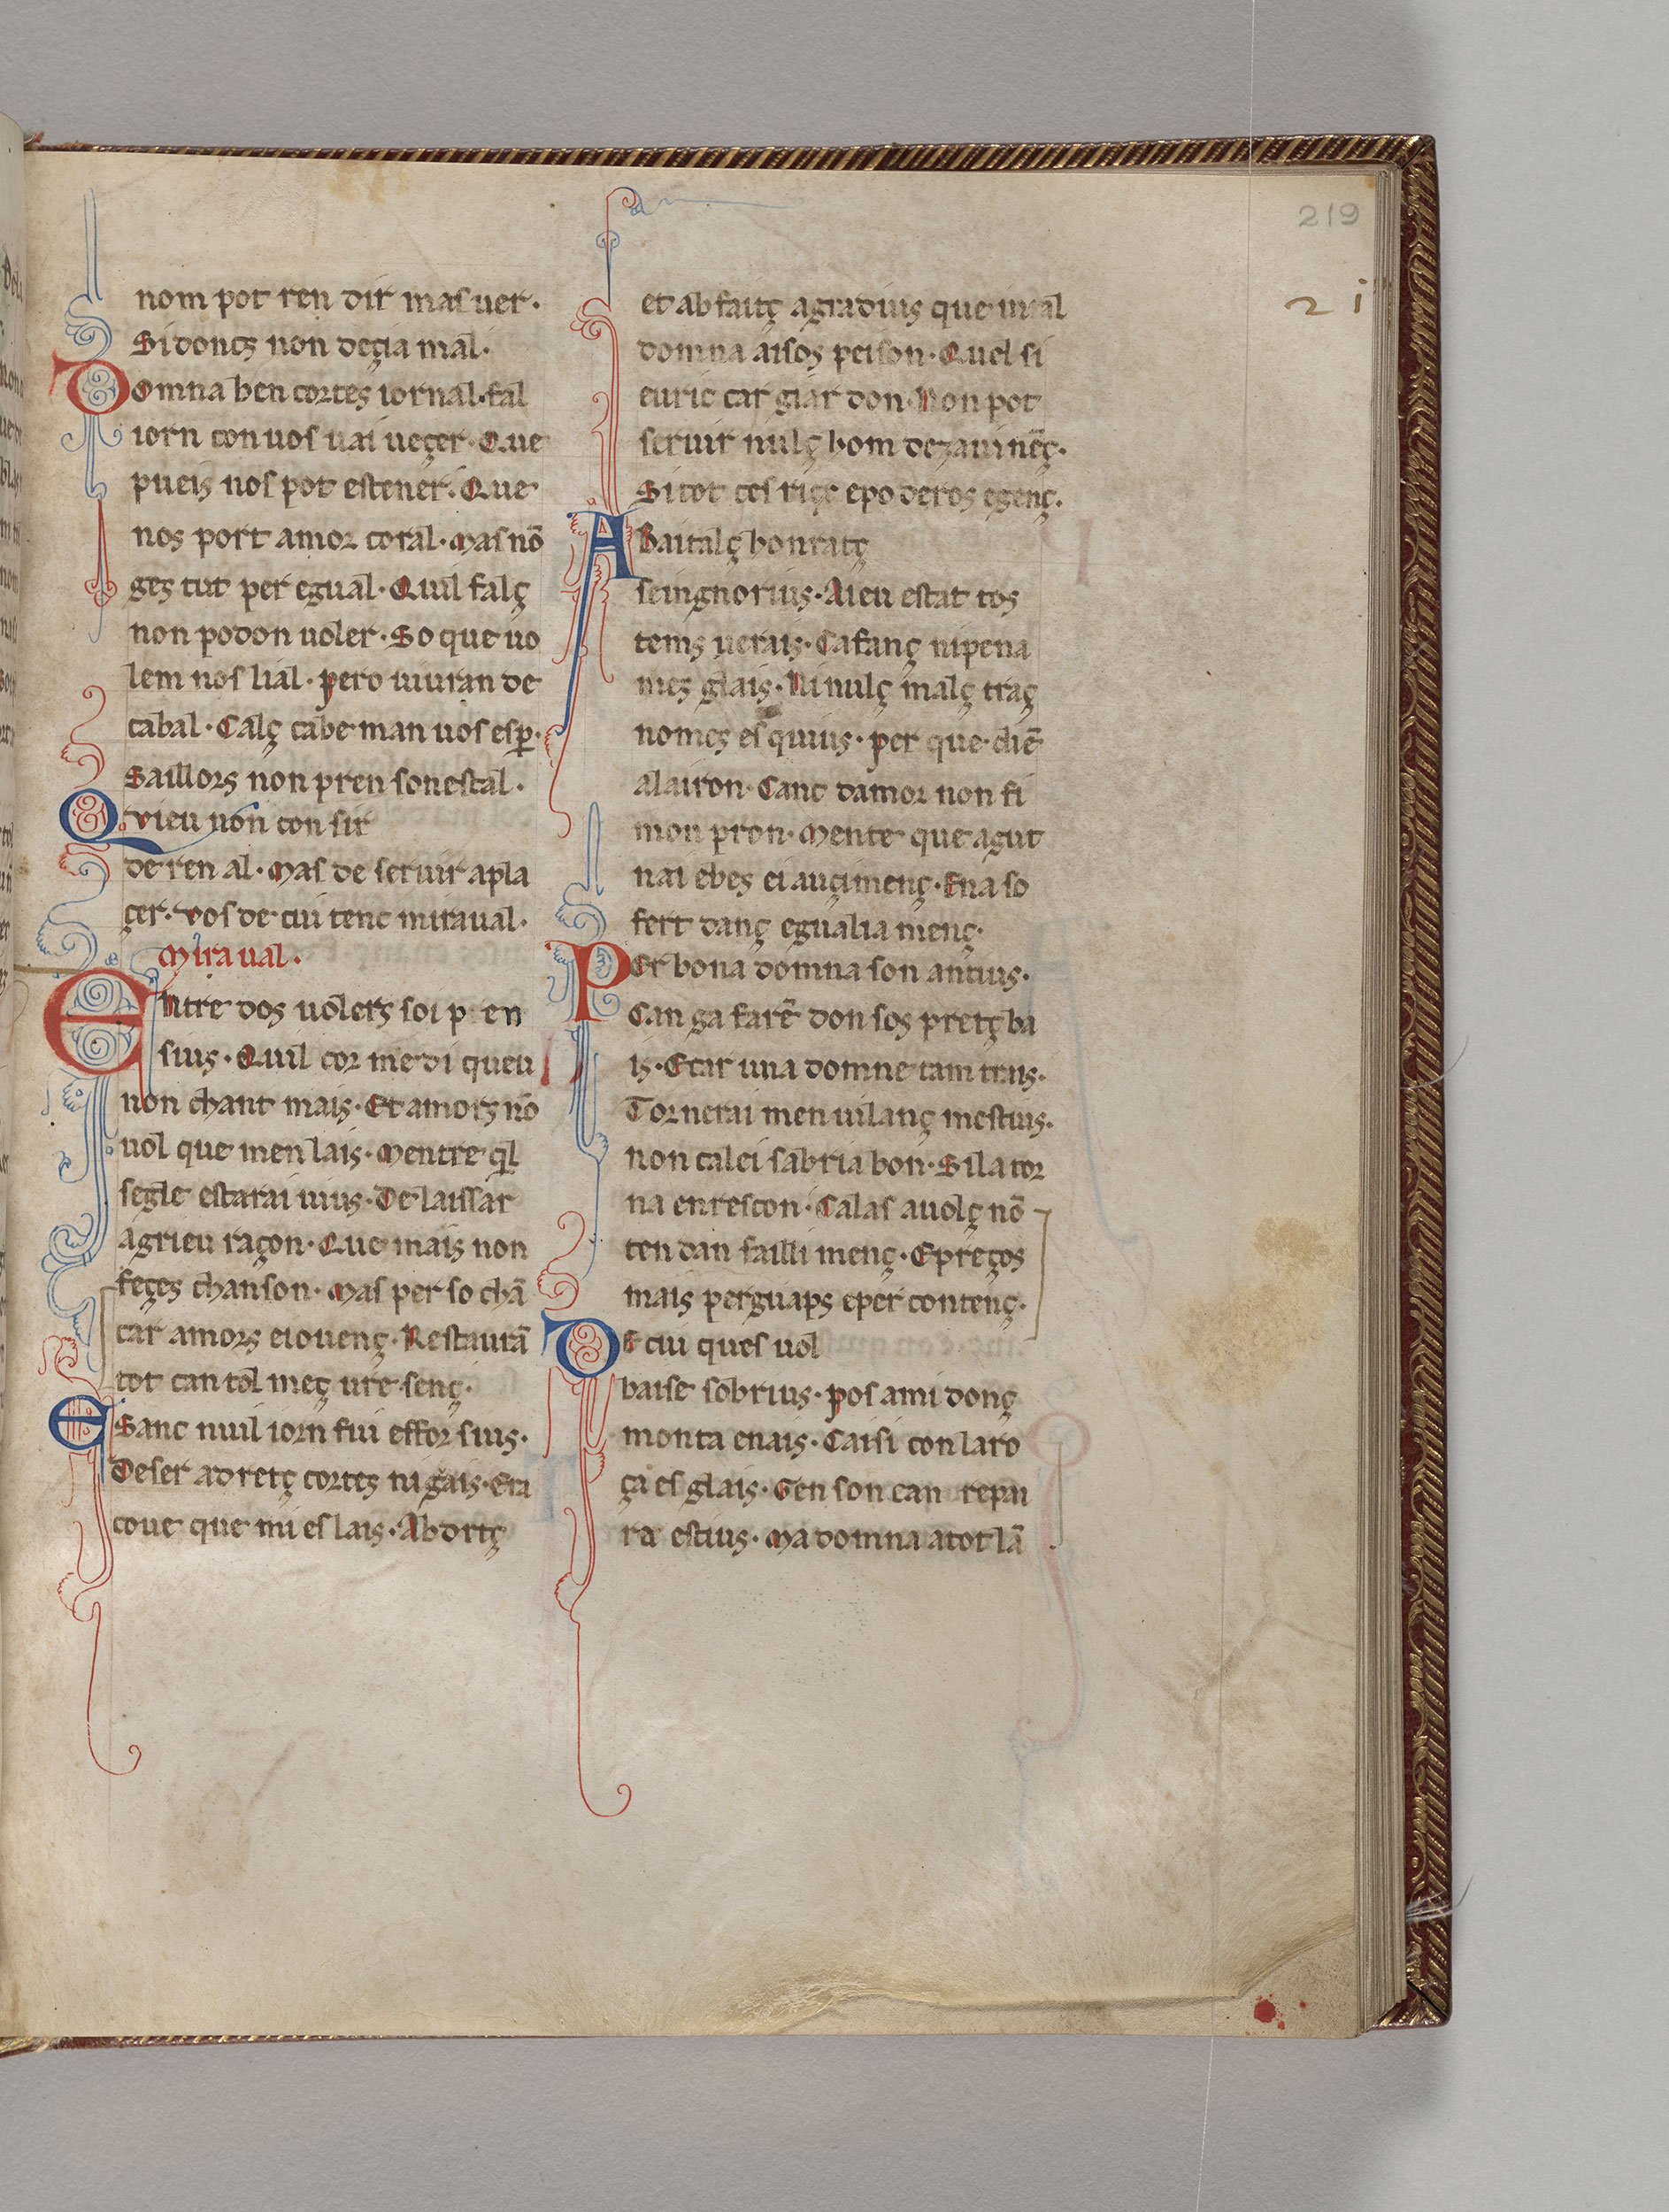 219
21
nom pot ren dir mas uer·
Si doncs non deçia mal·
Domna ben cortes iornal·fal
iorn con uos uai ueçer· Que
pueis nos pot estener· Que
nos port amor coral· mas nō
ges tut per egual· Quil falç
non podon uoler· So que uo
lem nos lial· pero uiuran de
cabal· Calç cabe man uos esp̱·
Saillors non pren son estal·
Qvieu non con sir
de ren al· mas de seruir a pla
çer· vos de cui tenc miraual·
Mira ual·
Entre dos uolers soi p en
siuis· Quil cor me di queu
non chant mais· Et amors nō
uol que men lais· mentre ql
segle estarai uius· De laissar
agrieu raçon· Que mais non
feçes chanson· mas per so chā
car amors eiouenç· Restaurā
tot can tol meç ure senç·
ESanc nuil iorn fui effor sius·
De ser adretç cortes ni gais· Era
coue que mi es lais· Ab dritç
et ab faitç agradius que
domna aisos peison· Quel si
euric car giardon· Non pot
seruir nulç hom dezauinēç·
Si tot ses riçc e poderos e genç·
ABaitalç honratç
seingnorius· Ai eu estat tos
tems uerais· Cafanç ni pena
mes glais· Ni nulç malç traç
nomes es quius· per que
al airon· Canc damor non fi
mon pron· mente que agut
nai ebes ei auçimenç· Ena so
fert danç egualia menç·
PEr bona domna son antius·
Can ga farē don sos pretç ba
is· E car una domne tam trais·
Tornerai men uilanç mestius·
non calei sabria bon· Sila tor
na en rescon· Calas auolç nō
ten dan failli menç· E preços
mais per guaps e per contenç·
DE cui ques uol
baise sobrius· pos ami donç
monta enais· Caisi con la ro
ça es glais· Gen son can repai
ra estius· ma domna a tot lā